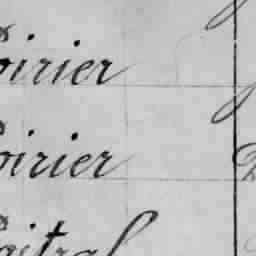 oirier
oirier
oitral